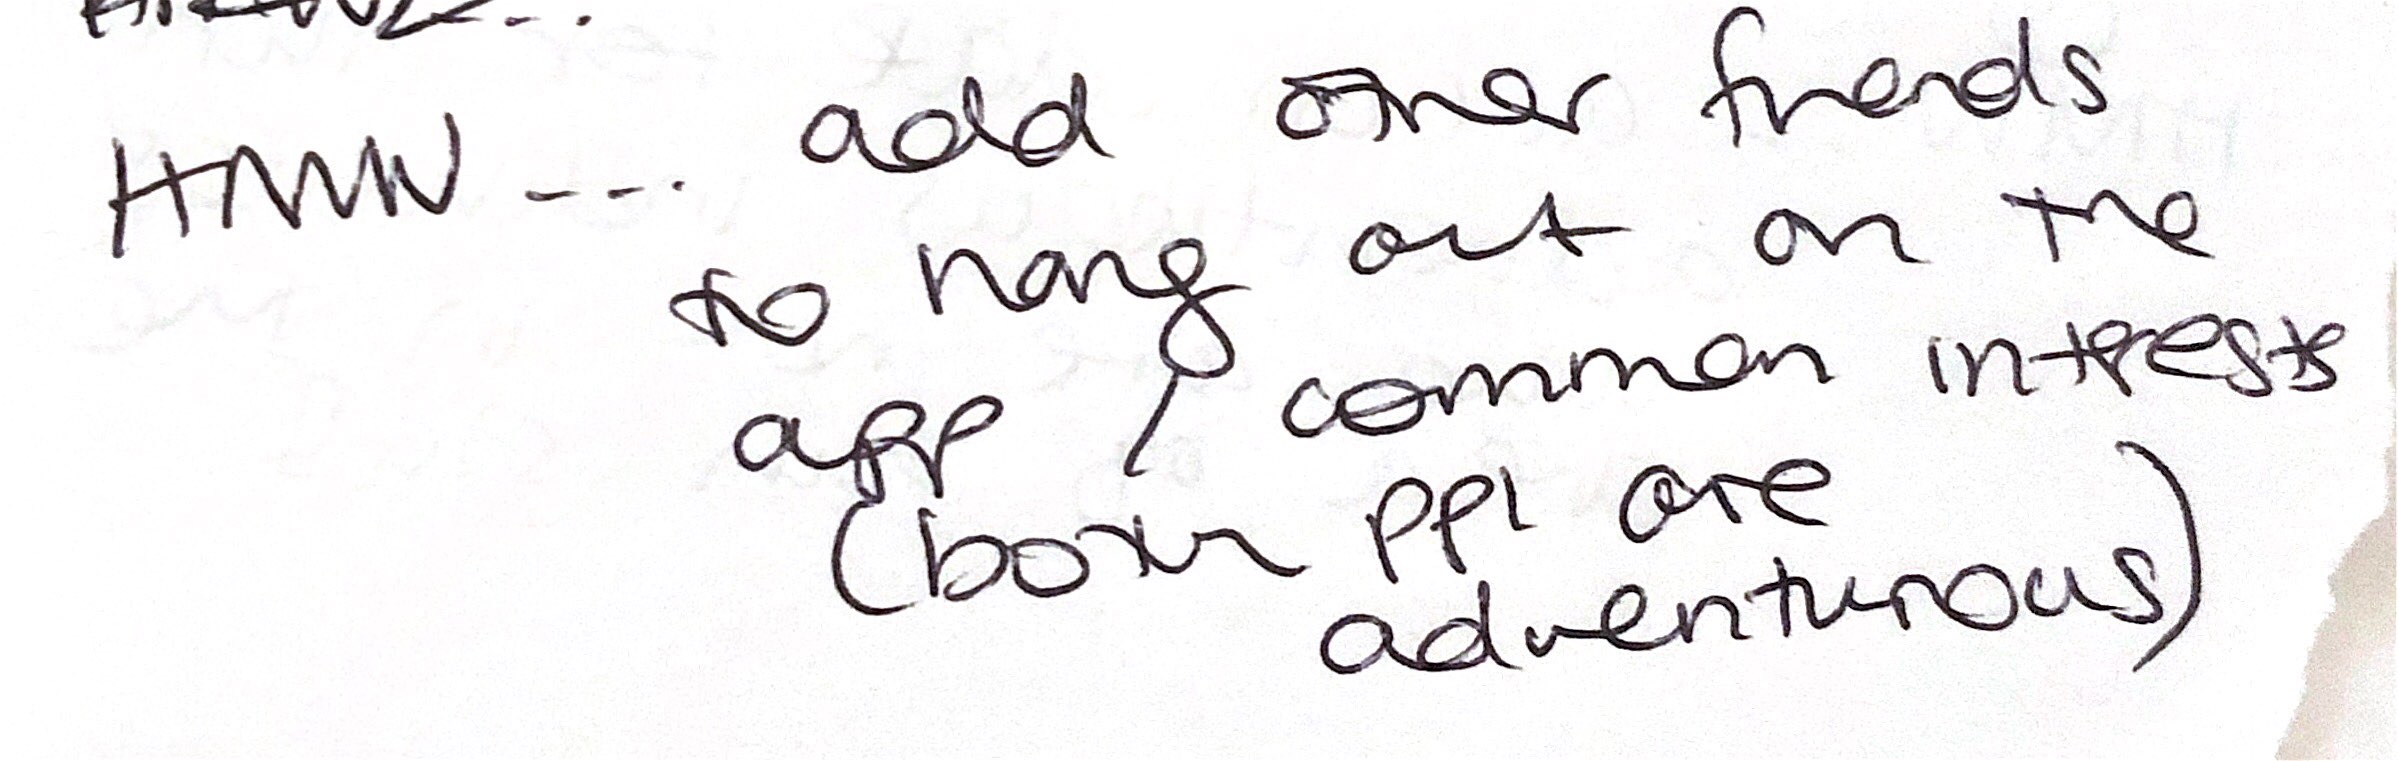 HMW ---. add other friends
to hang out on the
app / common interests
(both ppl are
adventurous)